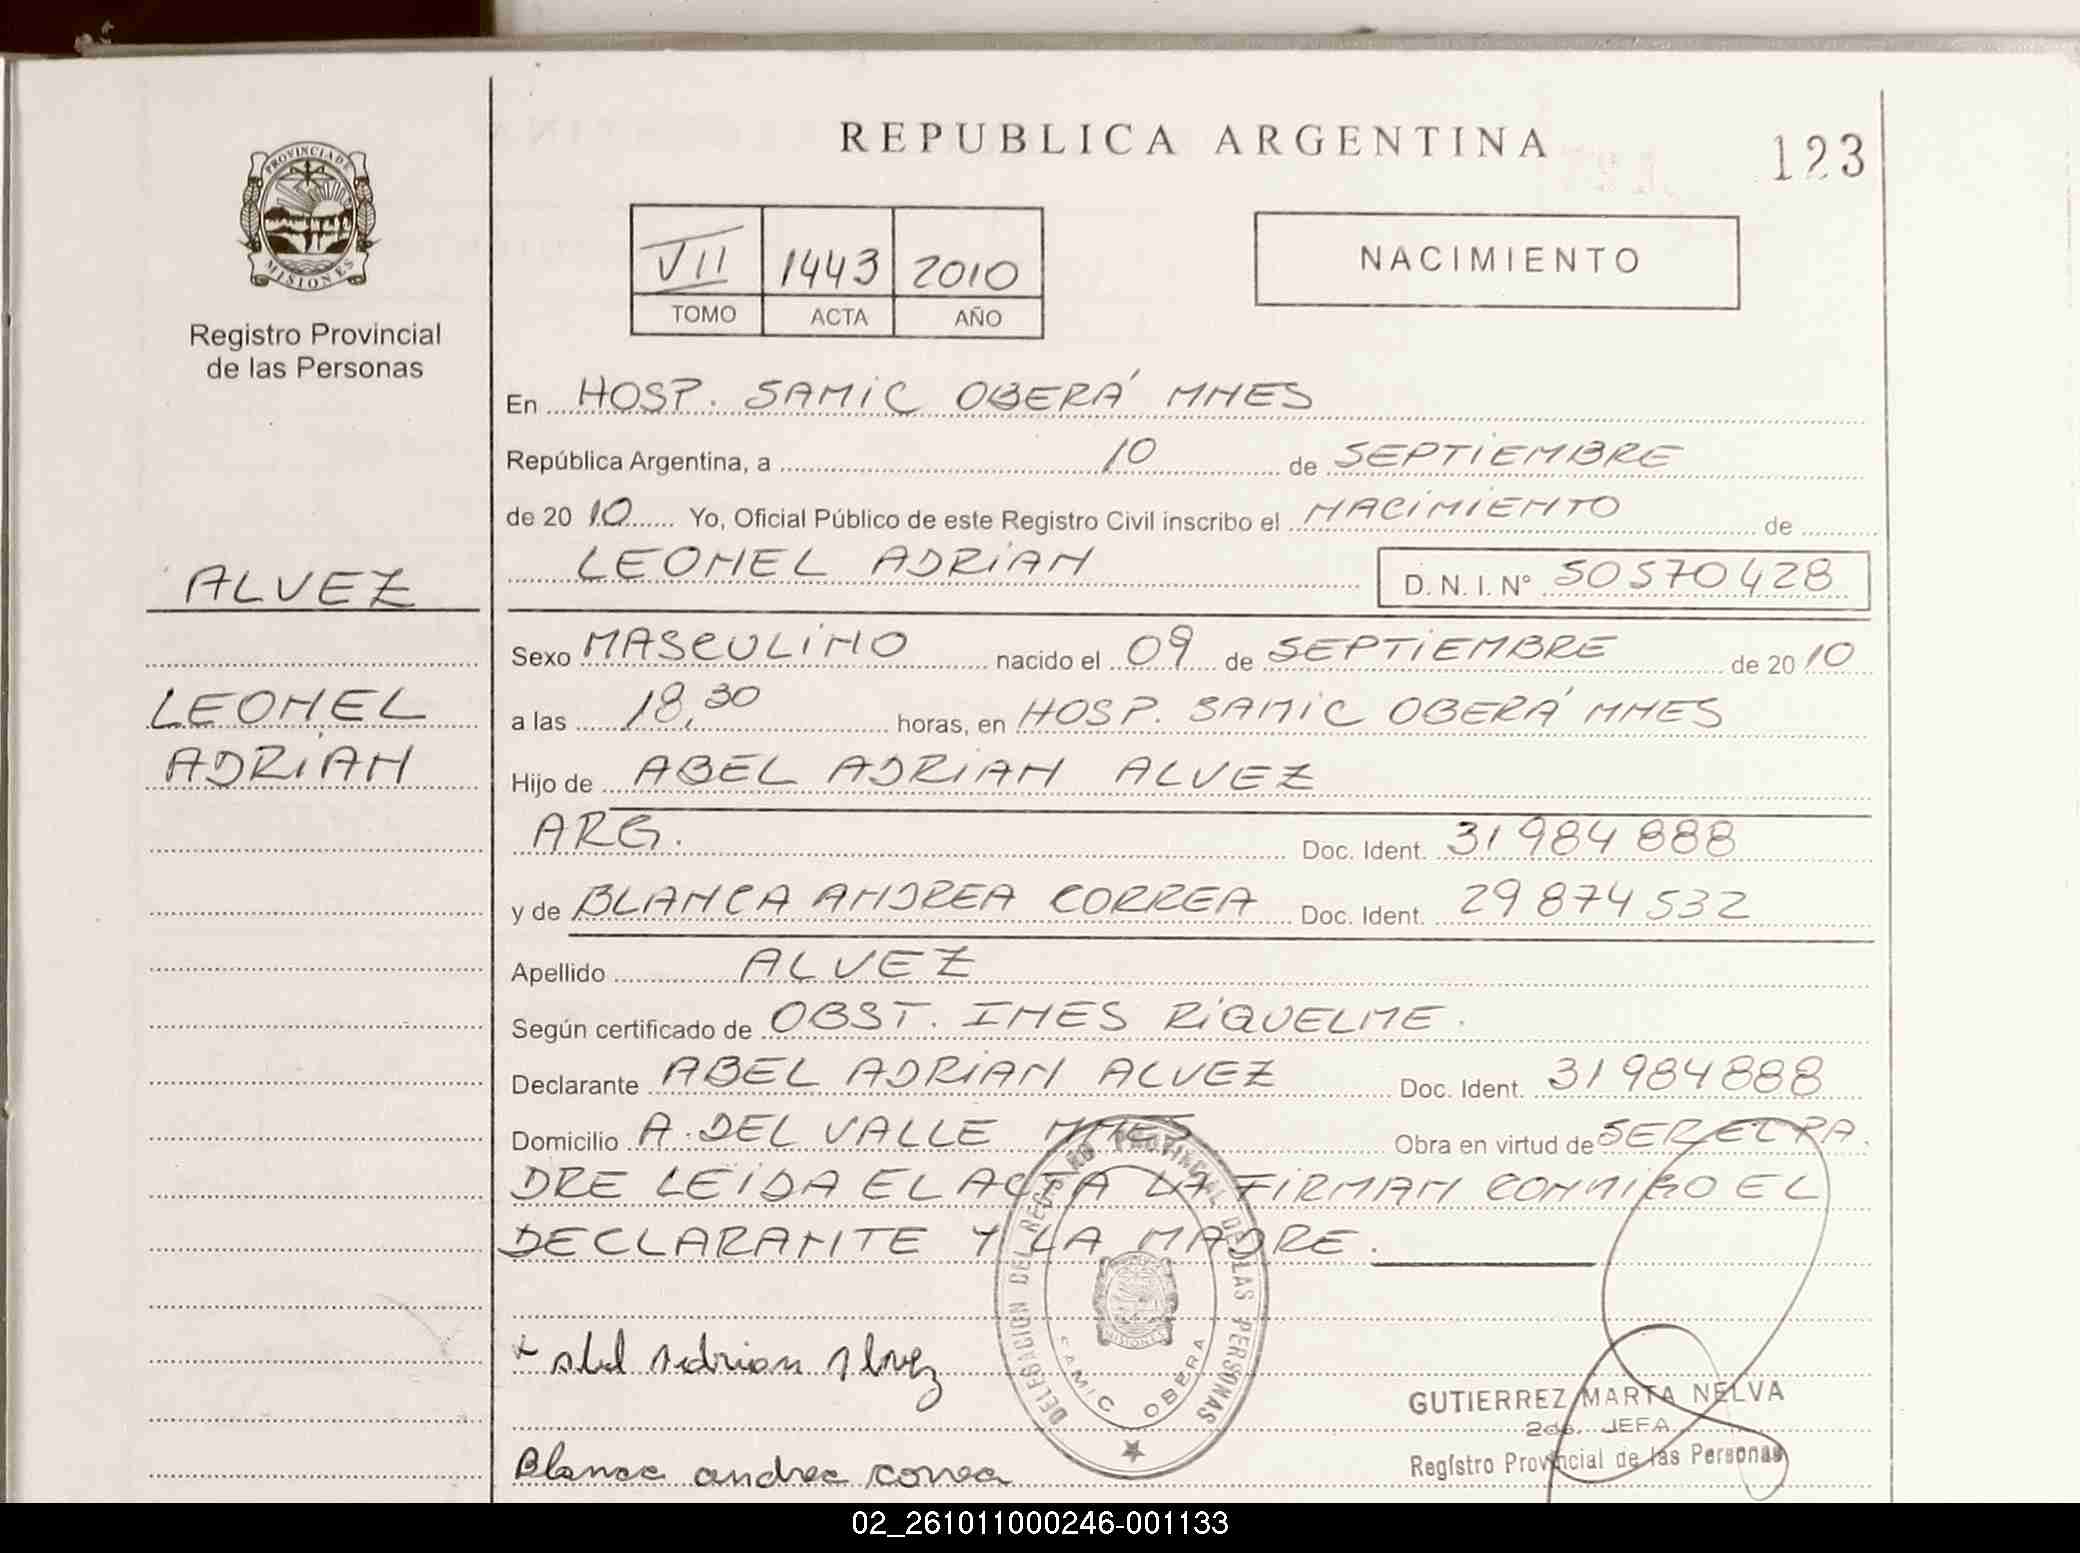 REPUBLICA ARGENTINA
123
PROVINCIA DE
MISIONES
Registro Provincial
de las Personas
VII 1443 2010
TOMO ACTA AÑO
NACIMIENTO
En HOSP. SAMIC OBERÁ MNES
República Argentina, a 10 de SEPTIEMBRE
de 2010 Yo, Oficial Público de este Registro Civil inscribo el NACIMIENTO de
LEONEL ADRIAN D. N. I. N° 50570428
ALVEZ
LEONEL
ADRIAN
Sexo MASCULINO nacido el 09 de SEPTIEMBRE de 2010
a las 18,30 horas, en HOSP. SAMIC OBERÁ MNES
Hijo de ABEL ADRIAN ALVEZ
ARG. Doc. Ident. 31984888
y de BLANCA ANDREA CORREA Doc. Ident. 29874532
Apellido ALVEZ
Según certificado de OBST. INES RIQUELME.
Declarante ABEL ADRIAN ALVEZ Doc. Ident. 31984888
Domicilio A. DEL VALLE MNES Obra en virtud de SER EL PA
DRE LEIDA EL ACTA LA FIRMAN CONMIGO EL
DECLARANTE Y LA MADRE.
DELEGACION DEL REGISTRO PROVINCIAL DE LAS PERSONAS
MISIONES
SAMIC OBERA
+ Abel Adrian Alvez
Blanca andrea correa
GUTIERREZ MARTA NELVA
2da. JEFA
Registro Provincial de las Personas
02_261011000246-001133